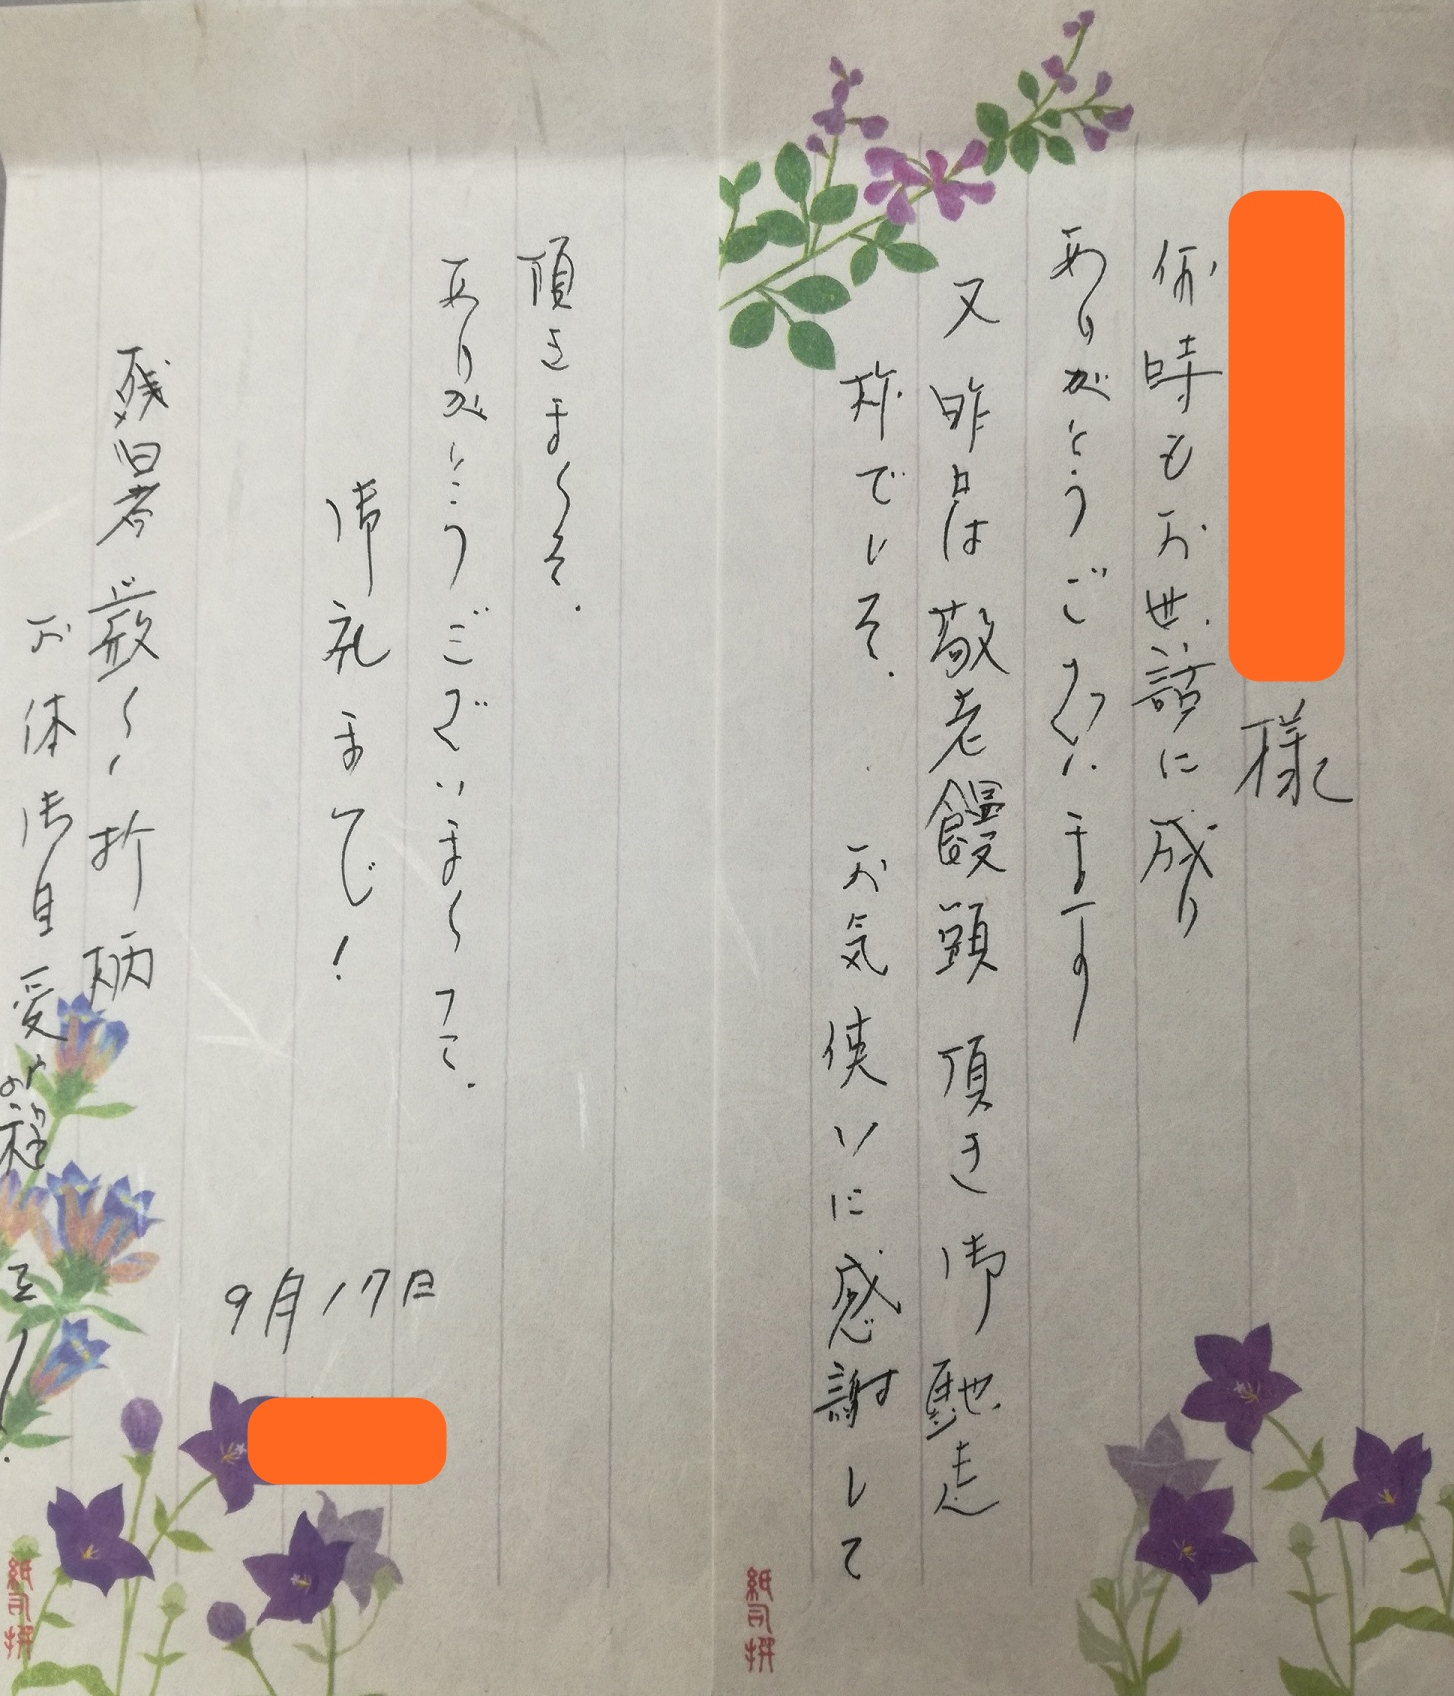 様
何時もお世話に成り
ありがとうございます
又昨日は敬老饅頭頂き御馳走
様でした。お気使いに感謝して
頂きました。
ありがとうございました。
御礼まで!
9月17日
残暑厳しい折柄
お体御自愛の程
紙司撰
紙司撰